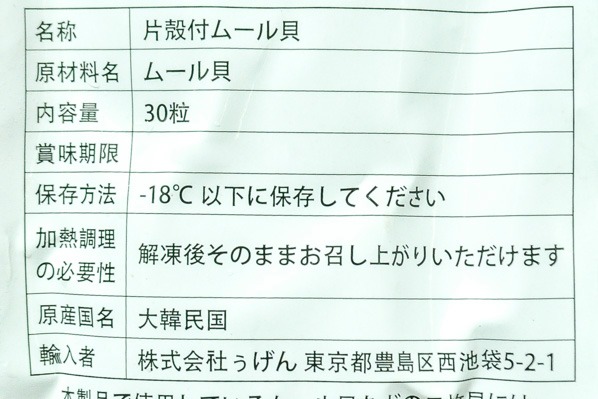 名称 片殻付ムール貝
原材料名 ムール貝
内容量 30粒
賞味期限
保存方法 -18℃ 以下に保存してください
加熱調理の必要性 解凍後そのままお召し上がりいただけます
原産国名 大韓民国
輸入者 株式会社うげん 東京都豊島区西池袋5-2-1